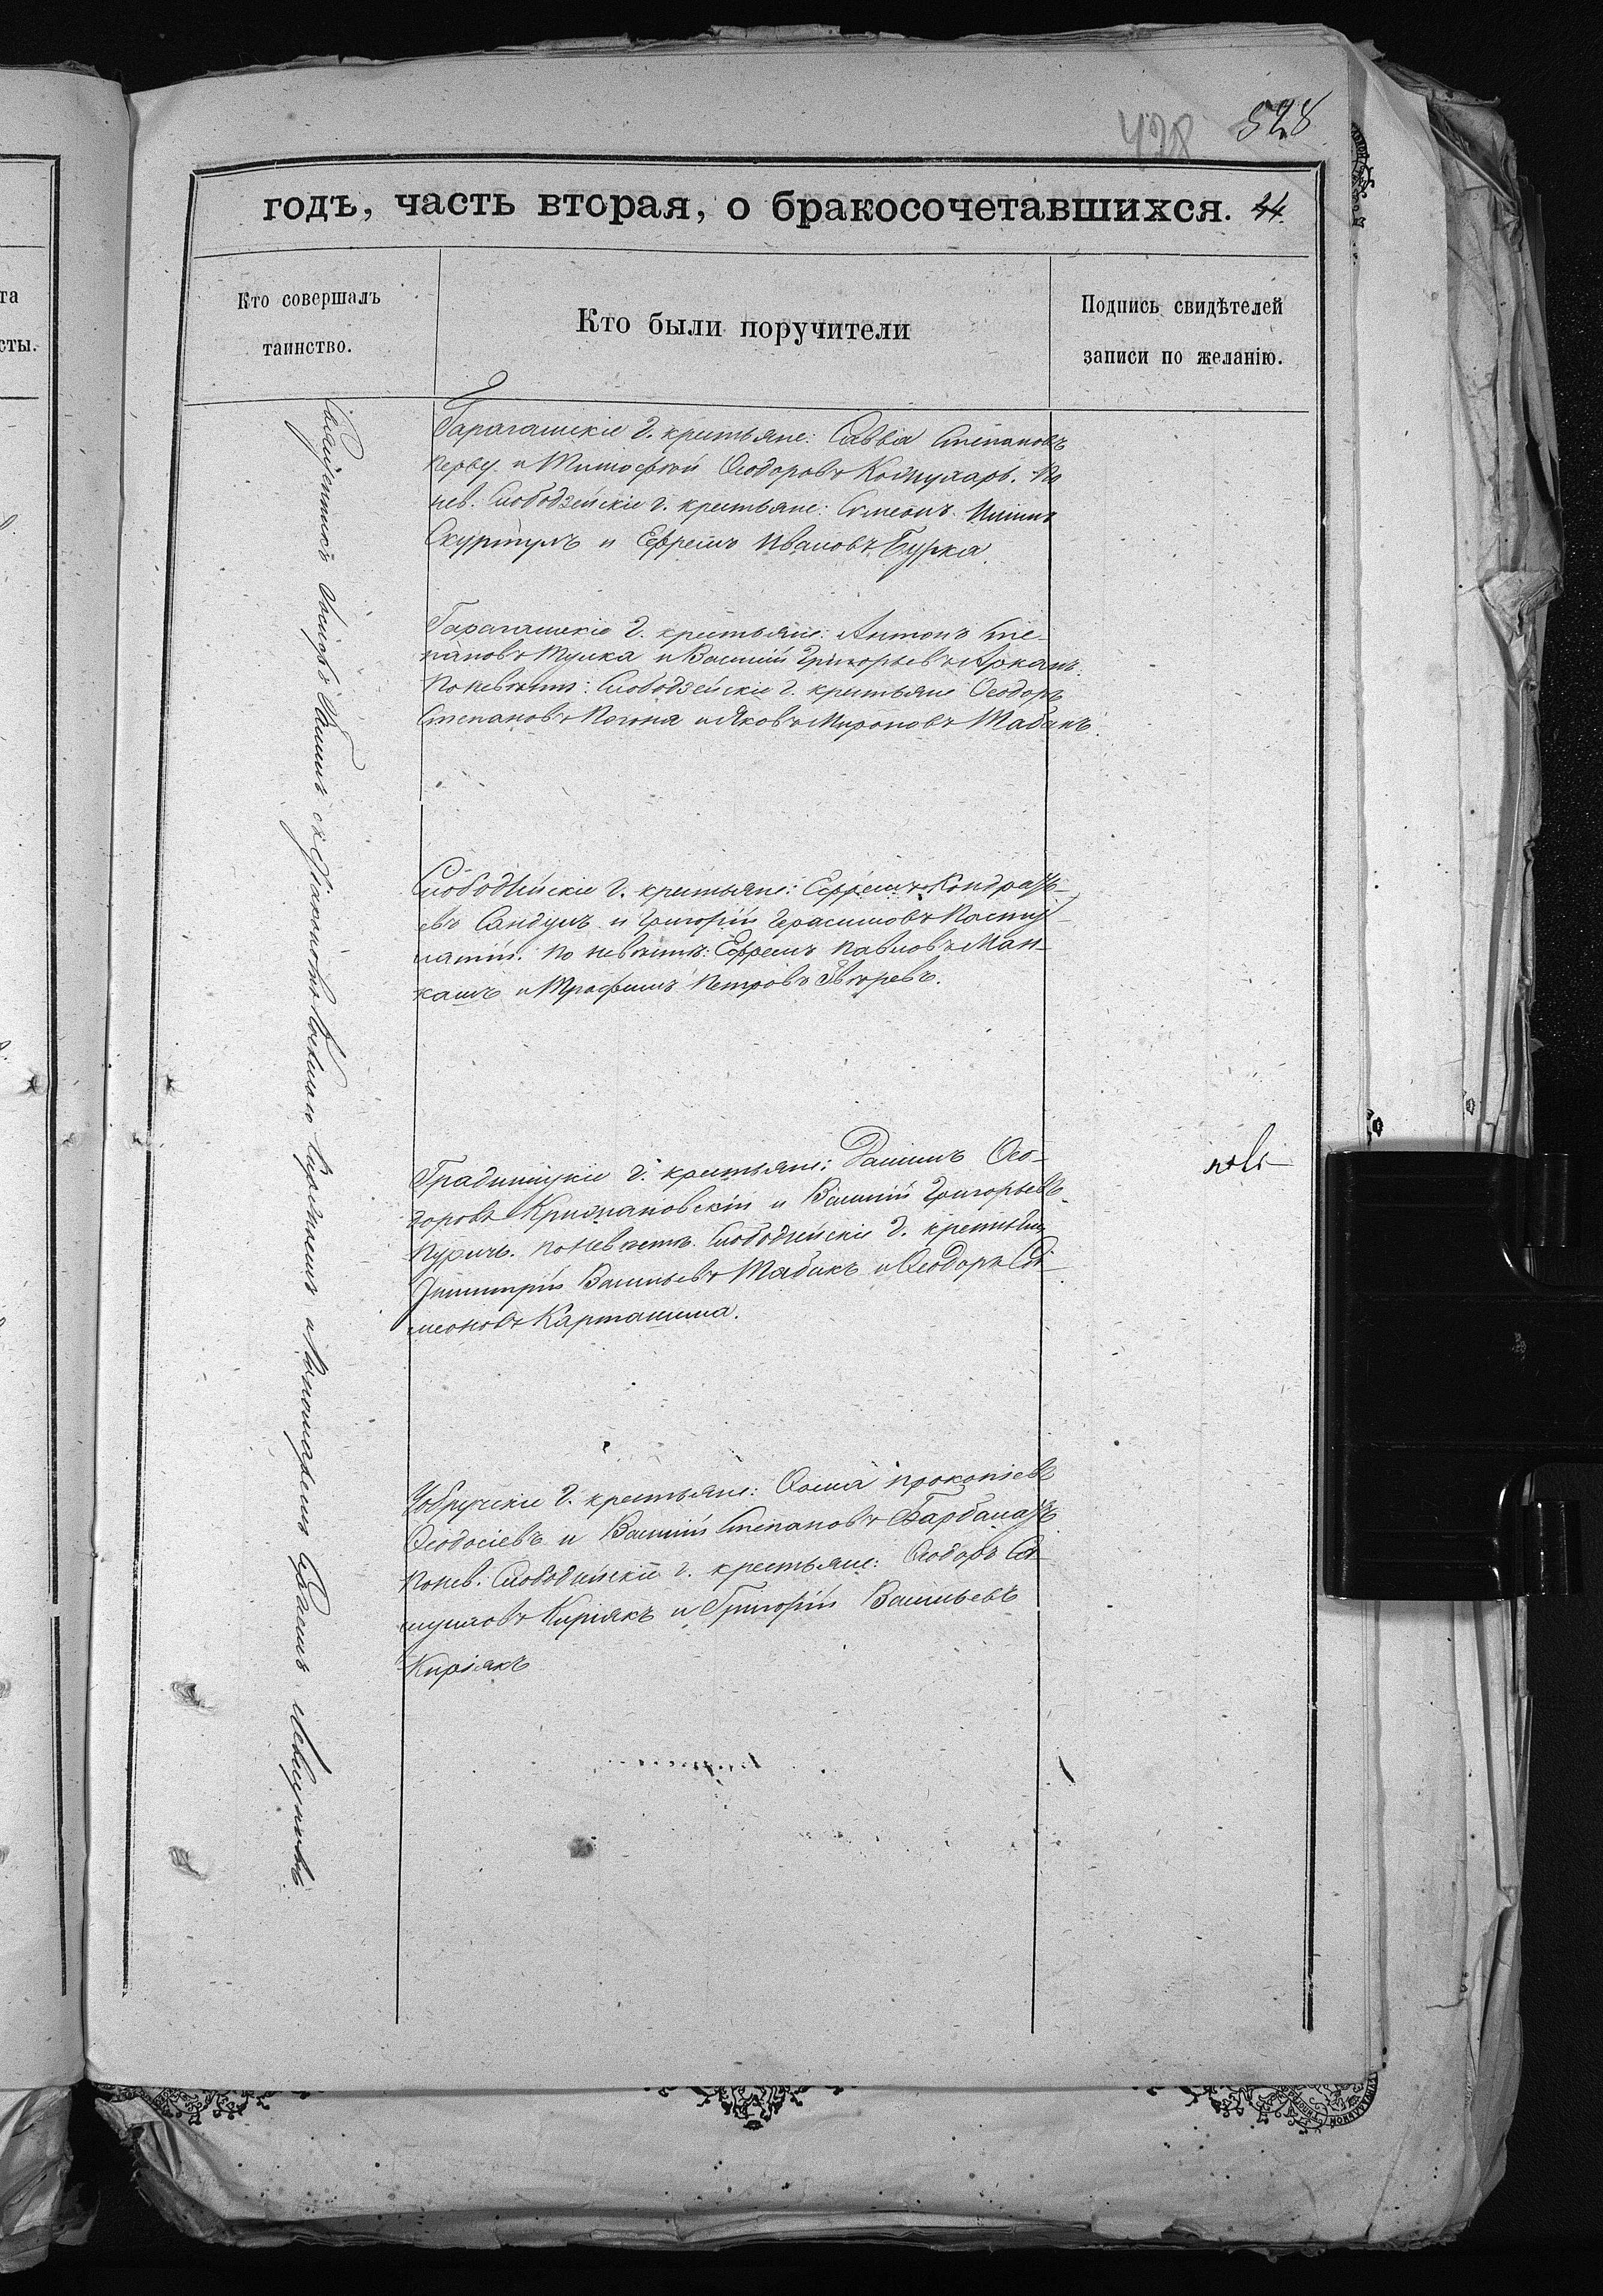 428 528
годъ, часть вторая, о бракосочетавшихся. 44.
Кто совершалъ
таинство.
Кто были поручители
Подпись свидѣтелей
записи по желанію.
Священникъ Іаковъ съ Діакономъ и Пономаремъ
Карагашскіе д. крестьяне: Савва Степановъ
Перву и Тимоѳей Ѳеодоровъ Кошухарь. По
нев. Слободзейскіе д. крестьяне: Симеонъ
Скуртулъ и Ефремъ Ивановъ Бурка.
Карагашскіе д. крестьяне: Антонъ Сте-
пановъ Мулка и Василій Григорьевъ Арканъ.
По невѣстѣ: Слободзейскіе д. крестьяне Ѳеодоръ
Степановъ Погоня и Яковъ Мироновъ Табакъ.
Слободзейскіе д. крестьяне: Ефремъ Кондратъ-
евъ Сандулъ и Григорій Герасимовъ
По невѣстѣ: Ефремъ Павловъ Ман-
кашъ и Трофимъ Петровъ Звѣревъ.
Градиницкіе д. крестьяне: Даніилъ Ѳео-
доровъ Крижановскій и Василій Григорьевъ
Куричъ. По невѣстѣ. Слободзейскіе д. крестьяне
Димитрій Васильевъ Табакъ и Ѳеодоръ Си-
меоновъ Карталина.
Чобручскіе д. крестьяне: Ѳома Прокопіевъ
Ѳеодосіевъ и Василій Степановъ Барбалатъ
По нев. Слободзейскіе д. крестьяне: Ѳеодоръ Са-
муиловъ Киріякъ и Григорій Васильевъ
Киріякъ